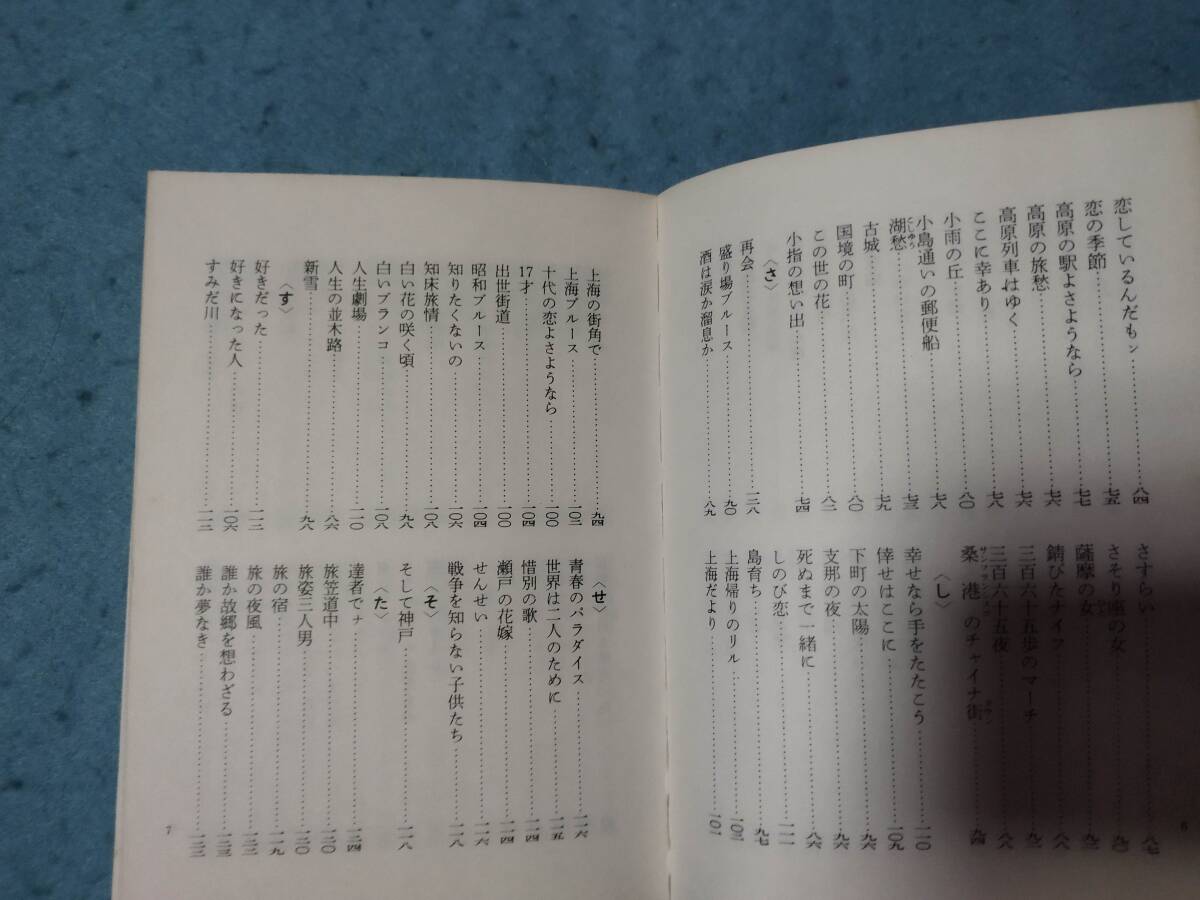 恋しているんだもン……八四
恋の季節……七五
高原の駅よさようなら……七七
高原の旅愁……七六
高原列車はゆく……七六
ここに幸あり……七八
小雨の丘……八〇
小島通いの郵便船……七八
湖愁……七三
こしゅう
古城……七九
国境の町……八〇
この世の花……八二
小指の想い出……七四
〈さ〉
再会……一二八
盛り場ブルース……九〇
酒は涙か溜息か……八九
さすらい……八七
さそり座の女……
薩摩の女……
錆びたナイフ……八八
三百六十五歩のマーチ……
三百六十五夜……八八
桑港のチャイナ街……九四
サンフランシスコ
タウン
〈し〉
幸せなら手をたたこう……一一〇
倖せはここに……一〇九
下町の太陽……九六
支那の夜……九六
死ぬまで一緒に……八六
しのび恋……一一一
島育ち……九七
上海帰りのリル……一〇二
上海だより……一〇一
6
上海の街角で……九四
上海ブルース……一〇二
十代の恋よさようなら……一〇〇
17才……一〇四
出世街道……一〇〇
昭和ブルース……一〇四
知りたくないの……一〇六
知床旅情……一〇八
白い花の咲く頃……九八
白いブランコ……一〇八
人生劇場……一一〇
人生の並木路……八六
新雪……九八
〈す〉
好きだった……一一二
好きになった人……一〇六
すみだ川……一一二
〈せ〉
青春のパラダイス……一一六
世界は二人のために……一一五
惜別の歌……一一四
瀬戸の花嫁……一一四
せんせい……一一六
戦争を知らない子供たち……一一八
〈そ〉
そして神戸……一一八
〈た〉
達者でナ……一二四
旅笠道中……一二〇
旅姿三人男……一二〇
旅の宿……一一九
旅の夜風……一二二
誰か故郷を想わざる……一二三
誰か夢なき……一二三
7